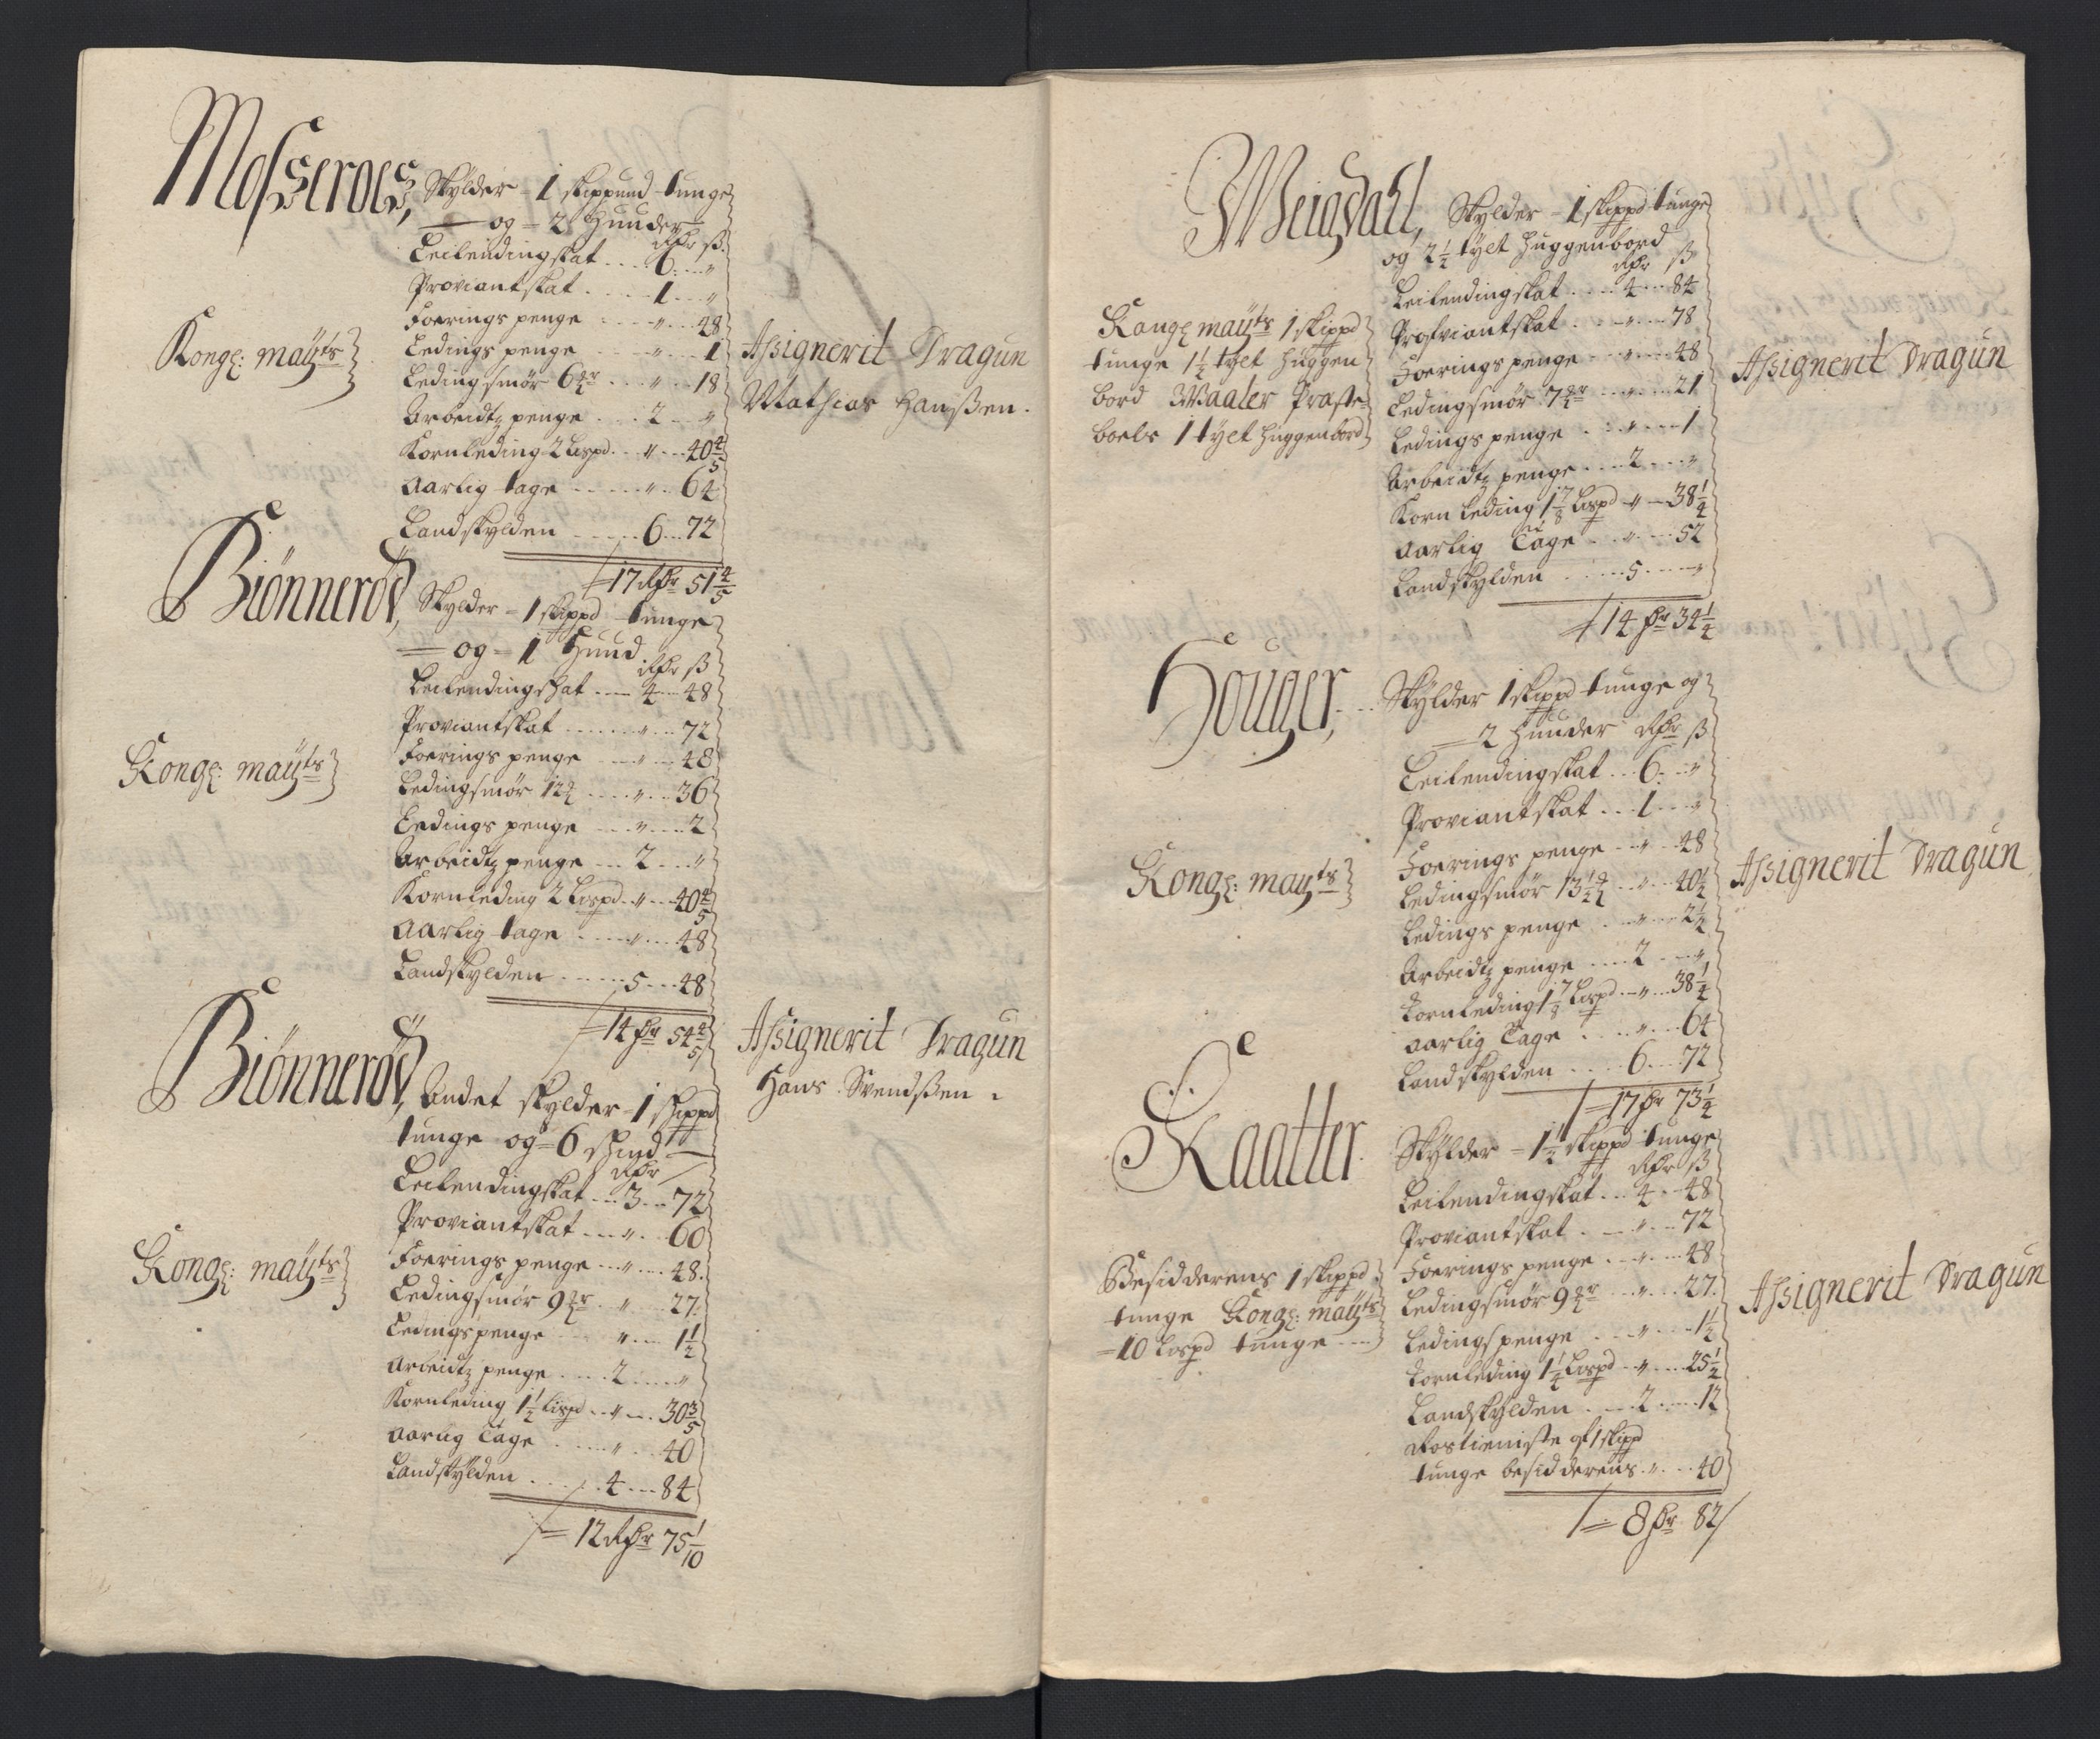 Mosserøes, Skylder - 1 skippund tunge
og - 2 Huuder
Rdr ß
Leilendingskat .... 6 .. "
Proviantskat .... 1 .. "
Foerings penge ... " ... 48
Ledings penge ... " ... 1
Ledingsmör 6 ... " ... 18
Arbeidtz penge ... 2 .. "
Kornleding 2 Lispd .. " ... 40 4/5
Aarlig tage ..... " .. 64
Landskylden ..... 6 ... 72
17 Rdr 51 4/5
Kong: mayts
Assignerit Dragun
Mathias Hanßen.
Biönneröd, Skylder - 1 skippd tunge
og - 1 Huud
Rdr ß
Leilendingskat ... 4 ... 48
Proviantskat ...... " ... 72
Foerings penge ... " ... 48
Ledingsmör 12 .... " ... 36
Ledings penge ... " ... 2
Arbeidtz penge ... 2 ... "
Kornleding 2 Lispd .. " ... 40 4/5
Aarlig tage .... " ... 48
Landskylden ...... 5 ... 48
14 dr 54 4/5
Kong: mayts
Biönneröd, Andet skylder - 1 skippd
tunge og - 6 skind
Rdr
Leilendingskat ... 3 ... 72
Proviantskat .... " .. 60
Foerings penge ... " ... 48
Ledingsmör 9 .. " ... 27
Ledingspenge ... " ... 1 1/2
Arbeidtz penge .... 2 .... "
Kornleding 1 1/2 Lispd .. " ... 30 3/5
Aarlig tage ..... " .. 40
Landskylden ..... 4 ... 84
12 Rdr 75 1/10
Kong: mayts
Assignerit Dragun
Hans Svendßen
Meigdahl, Skylder - 1 skippd tunge
og 2 1/2 tylt Huggenbord
Rdr ß
Leilendingskat .... 4 ... 84
Proviantskat .... " ... 78
Foerings penge ... " ... 48
Ledingsmör 7 .... " ... 21
Ledings penge ... " ... 1
Arbeidtz penge .... 2 ... "
Korn leding 1 7/8 Lispd .. " ... 38 1/4
Aarlig tage ... " ... 52
Landskylden ..... 5 ... "
14 dr 34 1/4
Kong mayts 1 skippd
tunge 1 1/2 tylt Huggen
bord Waaler Præste
boels 1 tylt Huggenbord
Assignerit Dragun
Houger, Skylder 1 skippd tunge og
2 Huuder Rdr ß
Leilendingskat ... 6 .. "
Proviantskat ... 1 ... "
Foerings penge ... " .. 48
Ledingsmör 13 1/2 ... " .. 40 1/2
Ledings penge ... " ... 2 1/4
Arbeidtz penge .... 2 ... "
Kornleding 1 7/8 Lispd .. " ... 38 1/4
Aarlig tage ... " ... 64
Landskylden .... 6 ... 72
17 dr 73 1/4
Kong: mayts
Assignerit Dragun
Kaatter. Skylder - 1 1/2 skippd tunge
Rdr ß
Leilendingskat ... 4 .. 48
Proviantskat ... " ... 72
Foerings penge ... " ... 48
Ledingsmör 9 ... " ... 27
Ledingspenge ... " ... 1 1/2
Kornleding 1 1/4 Lispd .. " .... 25 1/2
Landskylden .... 2 .... 12
Rostieniste af 1 skippd
tunge besidderens .. " ... 40
8 dr 82
Besidderens 1 skippd
tunge Kong: mayts
- 10 Lispd tunge
Assignerit Dragun